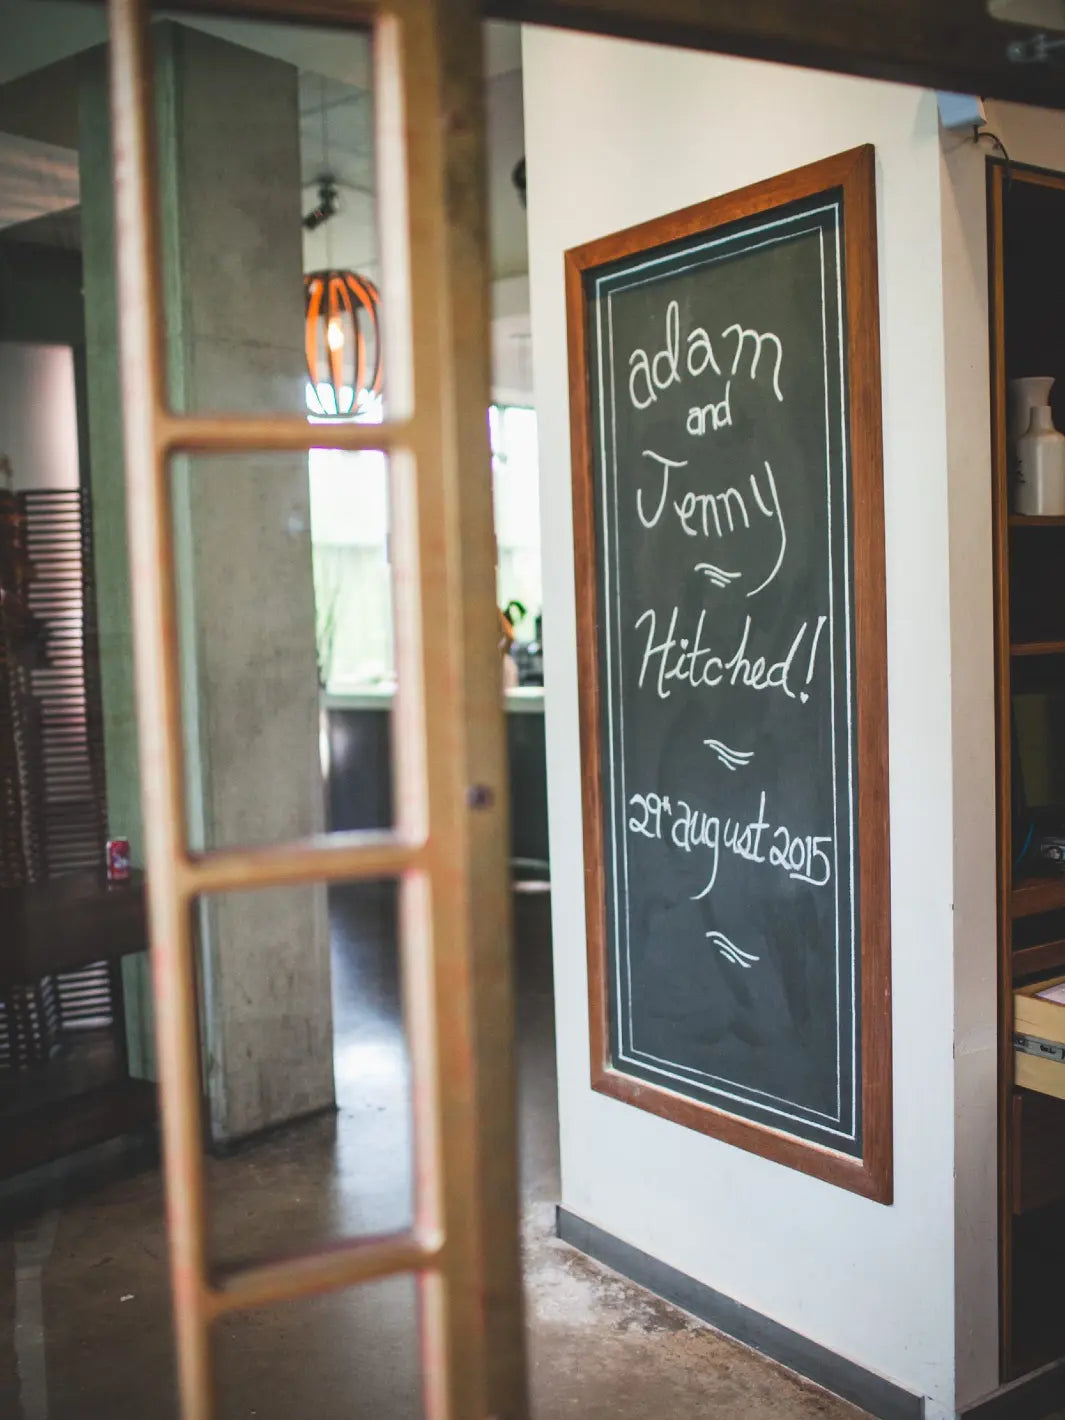 adam
and
Jenny
Hitched!
29th august 2015